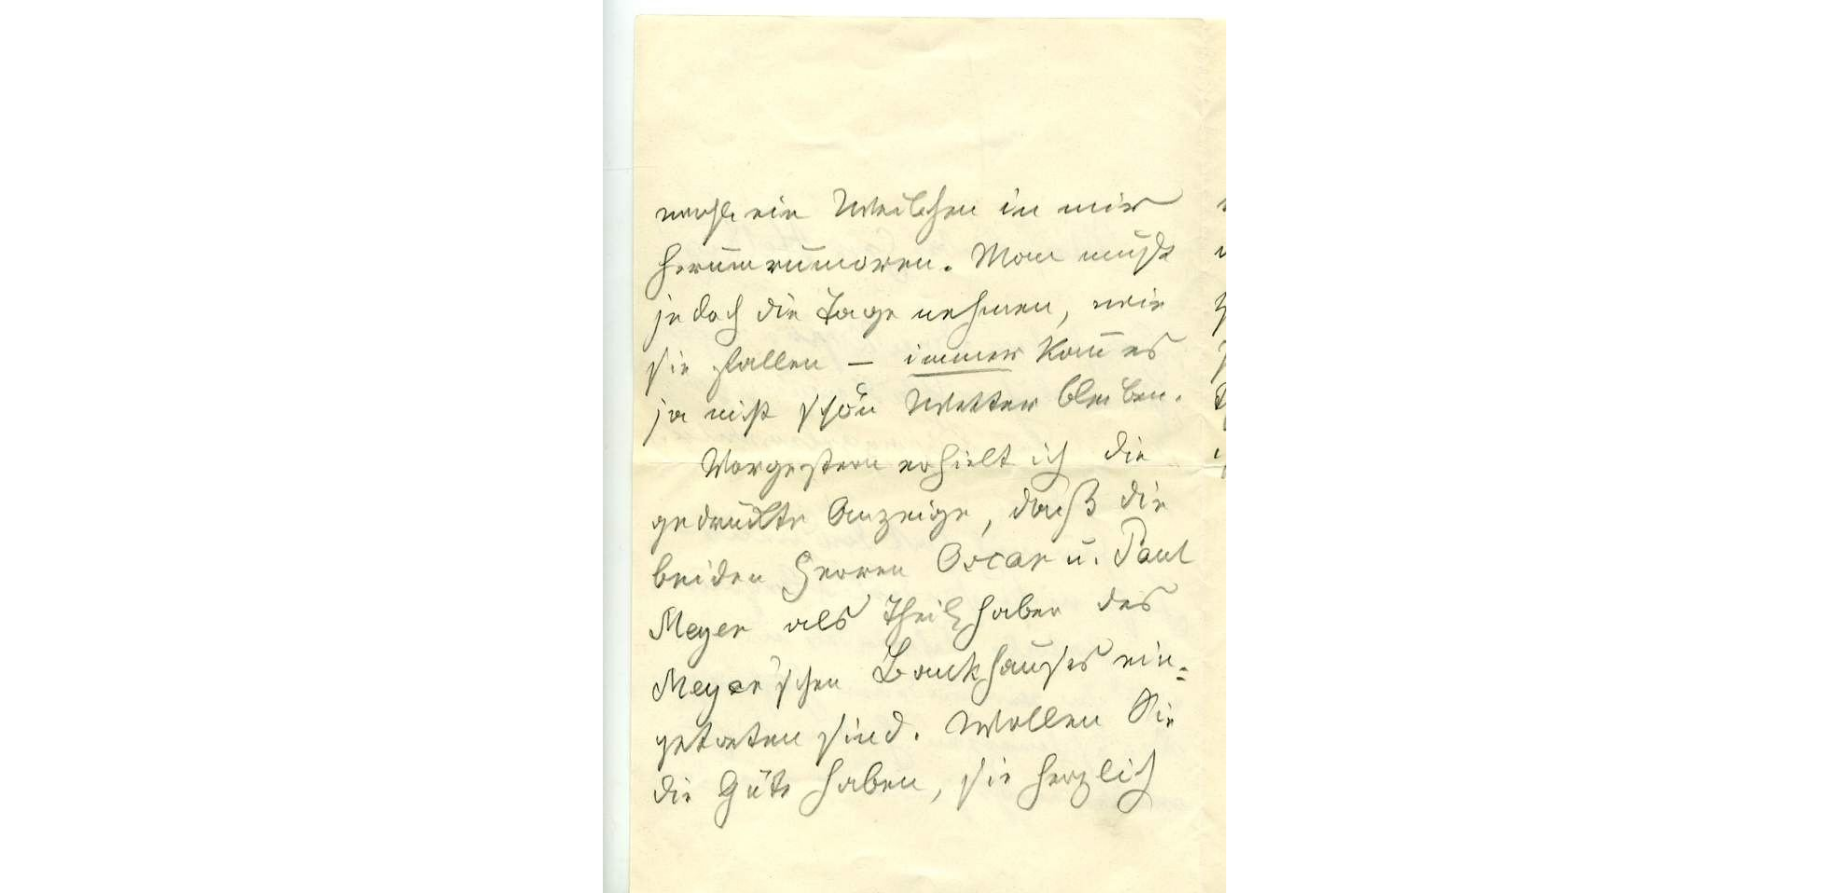 wohl ein Weilchen in mir
herumrumoren. Man muß
jedoch die Tage nehmen, wie
sie fallen – immer kann es
ja nicht schön Wetter bleiben.
Vorgestern erhielt ich die
gedruckte Anzeige, daß die
beiden Herren Oscar u. Paul
Meyer als Theilhaber des
Meyer'schen Bankhauses ein-
getreten sind. Wollen Sie
die Güte haben, sie herzlich